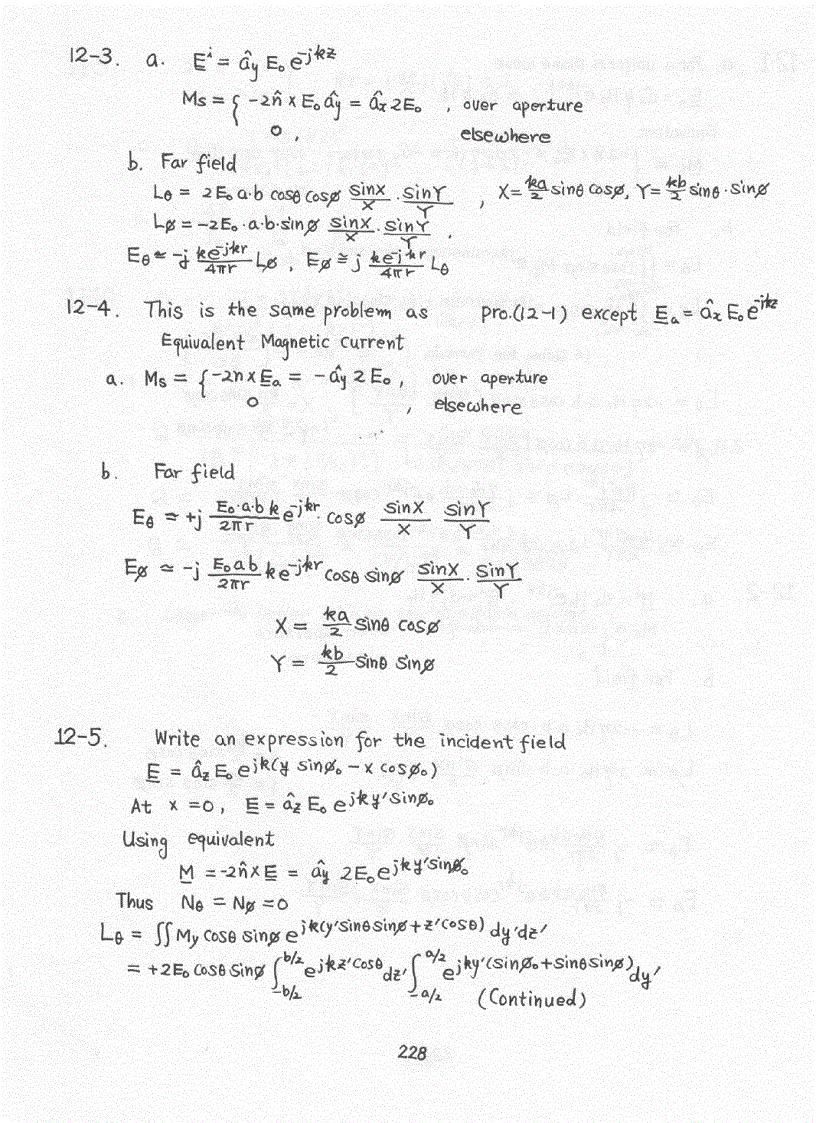 12-3. a. E^i = â_y E₀ e^{-jkz}
Ms = { -2n̂ × E₀ â_y = â_x 2E₀ , over aperture
0 , elsewhere
b. Far field
Lθ = 2E₀ a·b cosθ cosø sinX/X · sinY/Y , X = ka/2 sinθ cosø, Y = kb/2 sinθ · sinø
Lø = -2E₀ · a·b · sinø sinX/X · sinY/Y
Eθ ≃ -j ke^{-jkr}/4πr Lø , Eø ≅ j ke^{-jkr}/4πr Lθ
12-4. This is the same problem as pro.(12-1) except E_a = â_x E₀ e^{-jkz}
Equivalent Magnetic Current
a. Ms = { -2n × E_a = -â_y 2E₀ , over aperture
0 , elsewhere
b. Far field
Eθ ≃ +j E₀·a·b k/2πr e^{-jkr} cosø sinX/X sinY/Y
Eø ≃ -j E₀ab/2πr k e^{-jkr} cosθ sinø sinX/X · sinY/Y
X = ka/2 sinθ cosø
Y = kb/2 sinθ sinø
12-5. Write an expression for the incident field
E = â_z E₀ e^{jk(y sinø₀ - x cosø₀)}
At x = 0, E = â_z E₀ e^{jky' sinø₀}
Using equivalent
M = -2n̂×E = â_y 2E₀ e^{jky' sinø₀}
Thus Nθ = Nø = 0
Lθ = ∬ My cosθ sinø e^{jk(y' sinθ sinø + z' cosθ)} dy'dz'
= +2E₀ cosθ sinø ∫_{-b/2}^{b/2} e^{jkz' cosθ} dz' ∫_{-a/2}^{a/2} e^{jky'(sinø₀ + sinθ sinø)} dy'
(Continued)
228